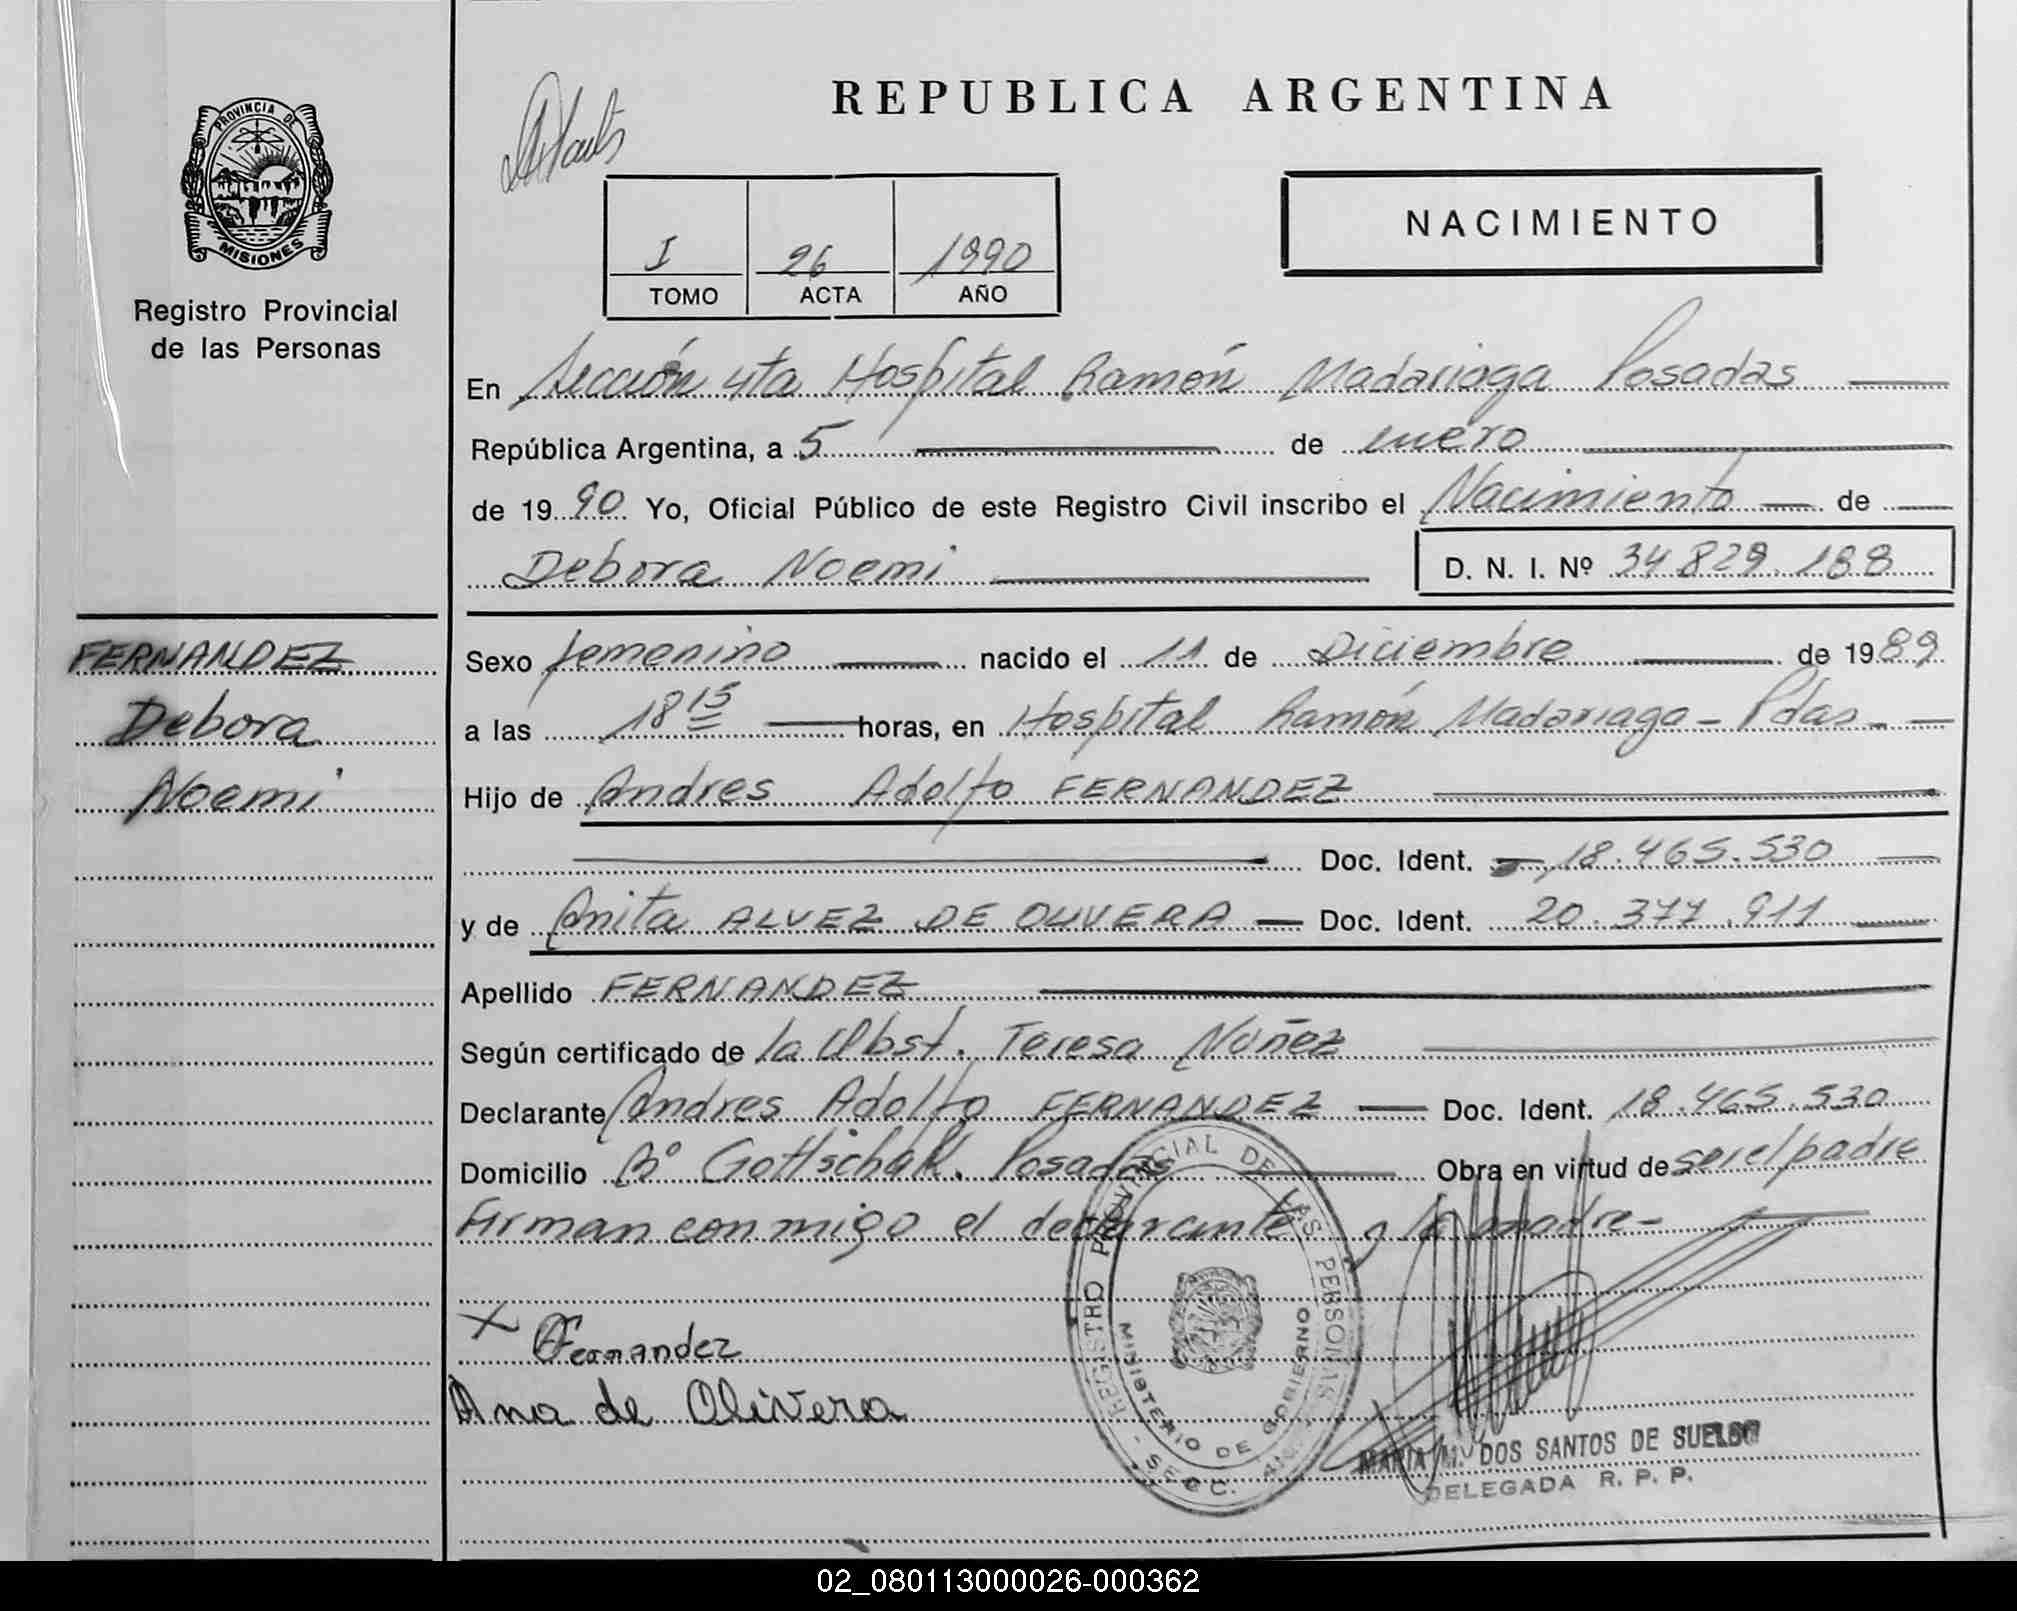 PROVINCIA DE
MISIONES
Registro Provincial
de las Personas
FERNANDEZ
Debora
Noemi
REPUBLICA ARGENTINA
NACIMIENTO
I 26 1990
TOMO ACTA AÑO
En Sección 4ta Hospital Ramón Madariaga Posadas
República Argentina, a 5 de enero
de 1990 Yo, Oficial Público de este Registro Civil inscribo el Nacimiento de
Debora Noemi D. N. I. Nº 34.829.188
Sexo femenino nacido el 11 de Diciembre de 1989
a las 18 15 horas, en Hospital Ramón Madariaga - Pdas -
Hijo de Andres Adolfo FERNANDEZ
Doc. Ident. 18.465.530
y de Anita ALVEZ DE OLIVERA Doc. Ident. 20.377.911
Apellido FERNANDEZ
Según certificado de la Obst. Teresa Nuñez
Declarante Andres Adolfo FERNANDEZ Doc. Ident. 18.465.530
Domicilio Bº Gottschalk. Posadas Obra en virtud de ser el padre
Firman conmigo el declarante y la madre -
X AFernandez
Ana de Olivera
REGISTRO PROVINCIAL DE LAS PERSONAS
MINISTERIO DE GOBIERNO
- SECC.
MARIA M. DOS SANTOS DE SUELDO
DELEGADA R. P. P.
02_080113000026-000362